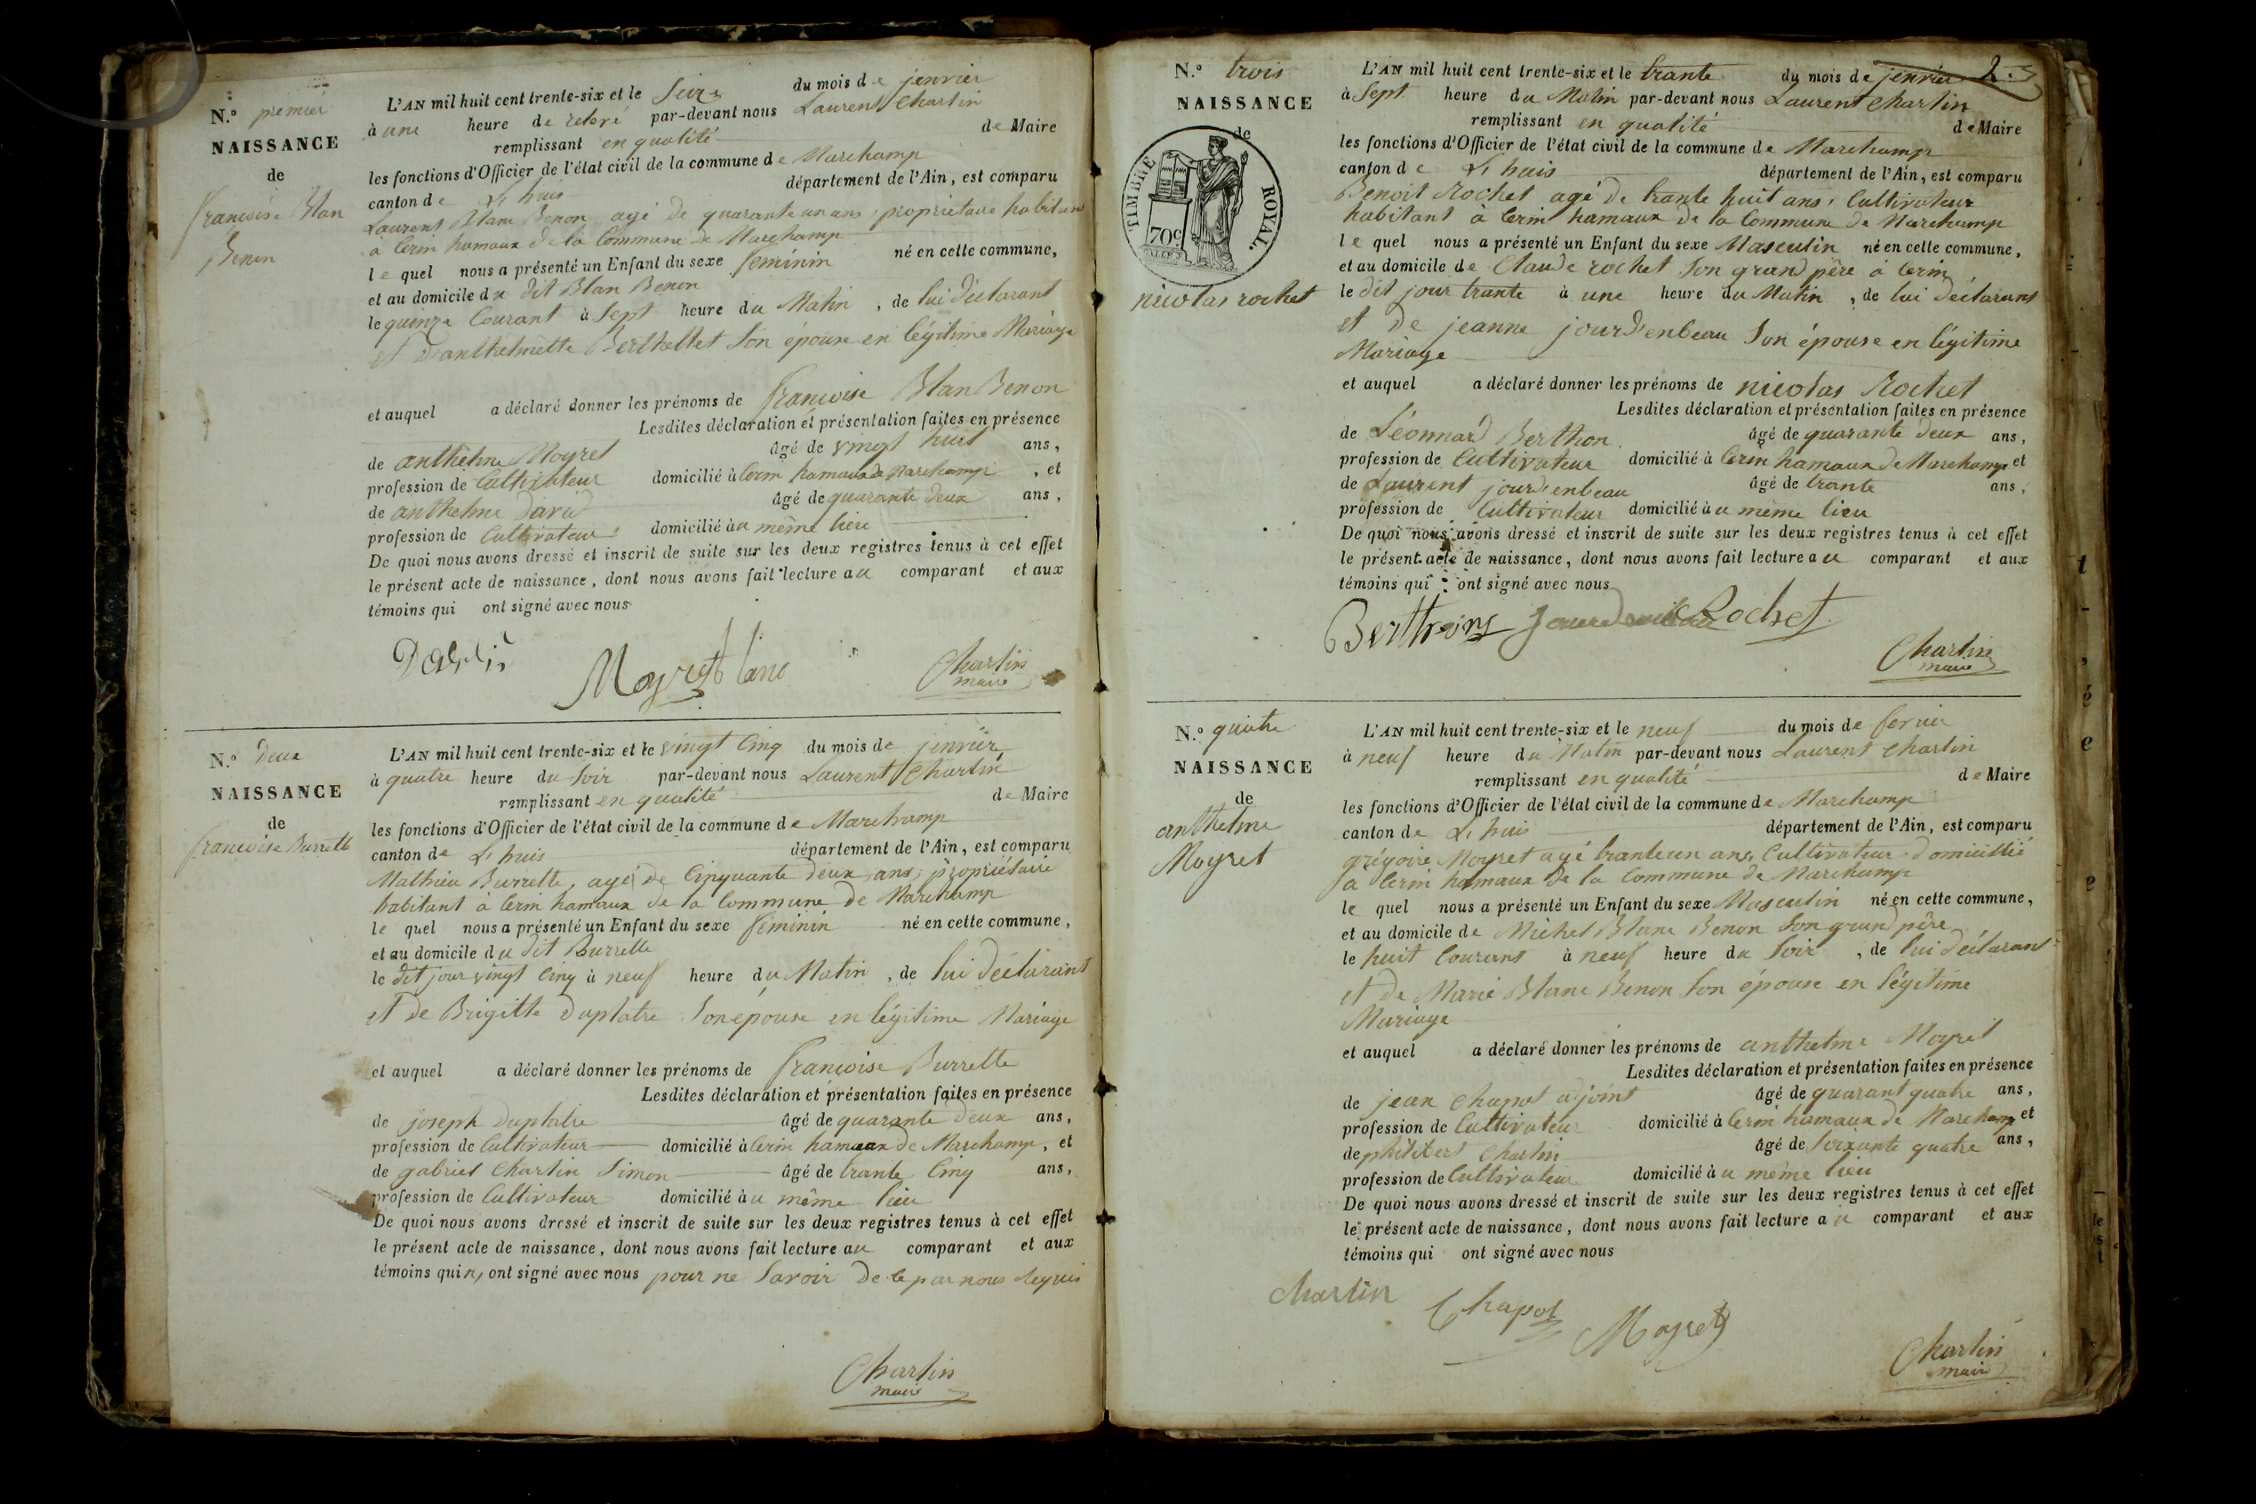 N.o premier
NAISSANCE
de
francoise Blan
Benon
L'AN mil huit cent trente-six et le Seize du mois de jenvier
à une heure de reloré par-devant nous Laurent Chartin
remplissant en qualité de Maire
les fonctions d'Officier de l'état civil de la commune de Marchamp
canton de L'huis département de l'Ain, est comparu
Laurent Blanc Benon agé de quarante un ans, propriétaire habitant
à Cerin hamaux de la Commune de Marchamp
le quel nous a présenté un Enfant du sexe feminin né en cette commune,
et au domicile du dit Blan Benon
le quinze Courant à Sept heure du Matin, de lui déclarant
et d'anthelmette Berthellet Son épouse en légitime Mariage
et auquel a déclaré donner les prénoms de francoise Blan Benon
Lesdites déclaration et présentation faites en présence
de anthelme Moyret âgé de vingt huit ans,
profession de Cultivateur domicilié à Cerin hamaux de Marchamp, et
de anthelme David âgé de quarante deux ans,
profession de Cultivateur domicilié au même lieu
De quoi nous avons dressé et inscrit de suite sur les deux registres tenus à cet effet
le présent acte de naissance, dont nous avons fait lecture au comparant et aux
témoins qui ont signé avec nous
Moyret blanc
Chartin
maire
N.o Deux
NAISSANCE
de
francoise Burrette
L'AN mil huit cent trente-six et le vingt Cinq du mois de jenvier
à quatre heure du Soir par-devant nous Laurent Chartin
remplissant en qualité de Maire
les fonctions d'Officier de l'état civil de la commune de Marchamp
canton de L'huis département de l'Ain, est comparu
Mathieu Burrette, agé de Cinquante deux ans, propriétaire
habitant à Cerin hamaux de la Commune de Marchamp
le quel nous a présenté un Enfant du sexe féminin né en cette commune,
et au domicile du dit Burrette
le dit jour vingt Cinq à neuf heure du Matin, de lui déclarant
et de Brigitte Duplatre Son épouse en légitime Mariage
et auquel a déclaré donner les prénoms de francoise Burrette
Lesdites déclaration et présentation faites en présence
de joseph Duplatre âgé de quarante deux ans,
profession de Cultivateur domicilié à Cerin hamaux de Marchamp, et
de gabriel Chartin Simon âgé de trante Cinq ans,
profession de Cultivateur domicilié au même lieu
De quoi nous avons dressé et inscrit de suite sur les deux registres tenus à cet effet
le présent acte de naissance, dont nous avons fait lecture au comparant et aux
témoins qui n'ont signé avec nous pour ne Savoir de ce par nous requis
Chartin
maire
2
N.o trois
NAISSANCE
de
TIMBRE ROYAL
70c
nicolas rochet
L'AN mil huit cent trente-six et le trante du mois de jenvier
à Sept heure du Matin par-devant nous Laurent Chartin
remplissant en qualité de Maire
les fonctions d'Officier de l'état civil de la commune de Marchamp
canton de L'huis département de l'Ain, est comparu
Benoit Rochet agé de trante huit ans, Cultivateur
habitant à Cerin hamaux de la Commune de Marchamp
le quel nous a présenté un Enfant du sexe Masculin né en cette commune,
et au domicile de Claude rochet Son grand père à Cerin
le dit jour trante à une heure du Matin, de lui déclarant
et de jeanne jourd'enbeau Son épouse en légitime
Mariage
et auquel a déclaré donner les prénoms de nicolas Rochet
Lesdites déclaration et présentation faites en présence
de Léonnard Berthon âgé de quarante deux ans,
profession de Cultivateur domicilié à Cerin hamaux de Marchamp et
de Laurent jourd'enbeau âgé de trante ans,
profession de Cultivateur domicilié au même lieu
De quoi nous avons dressé et inscrit de suite sur les deux registres tenus à cet effet
le présent acte de naissance, dont nous avons fait lecture au comparant et aux
témoins qui ont signé avec nous
Rochet
Chartin
maire
N.o quatre
NAISSANCE
de
anthelme
Moyret
L'AN mil huit cent trente-six et le neuf du mois de fevrier
à neuf heure du Matin par-devant nous Laurent Chartin
remplissant en qualité de Maire
les fonctions d'Officier de l'état civil de la commune de Marchamp
canton de L'huis département de l'Ain, est comparu
grégoire Moyret agé trante un ans Cultivateur domicilié
à Cerin hamaux de la Commune de Marchamp
le quel nous a présenté un Enfant du sexe Masculin né en cette commune,
et au domicile de Michel Blanc Benon Son grand père
le huit Courant à neuf heure du Soir, de lui déclarant
et de Marie Blanc Benon Son épouse en légitime
Mariage
et auquel a déclaré donner les prénoms de anthelme Moyret
Lesdites déclaration et présentation faites en présence
de jean Chapot adjoint âgé de quarant quatre ans,
profession de Cultivateur domicilié à Cerin hamaux de Marchamp et
de philibert Chartin âgé de Soixante quatre ans,
profession de Cultivateur domicilié au même lieu
De quoi nous avons dressé et inscrit de suite sur les deux registres tenus à cet effet
le présent acte de naissance, dont nous avons fait lecture au comparant et aux
témoins qui ont signé avec nous
Chartin Chapot Moyret
Chartin
maire